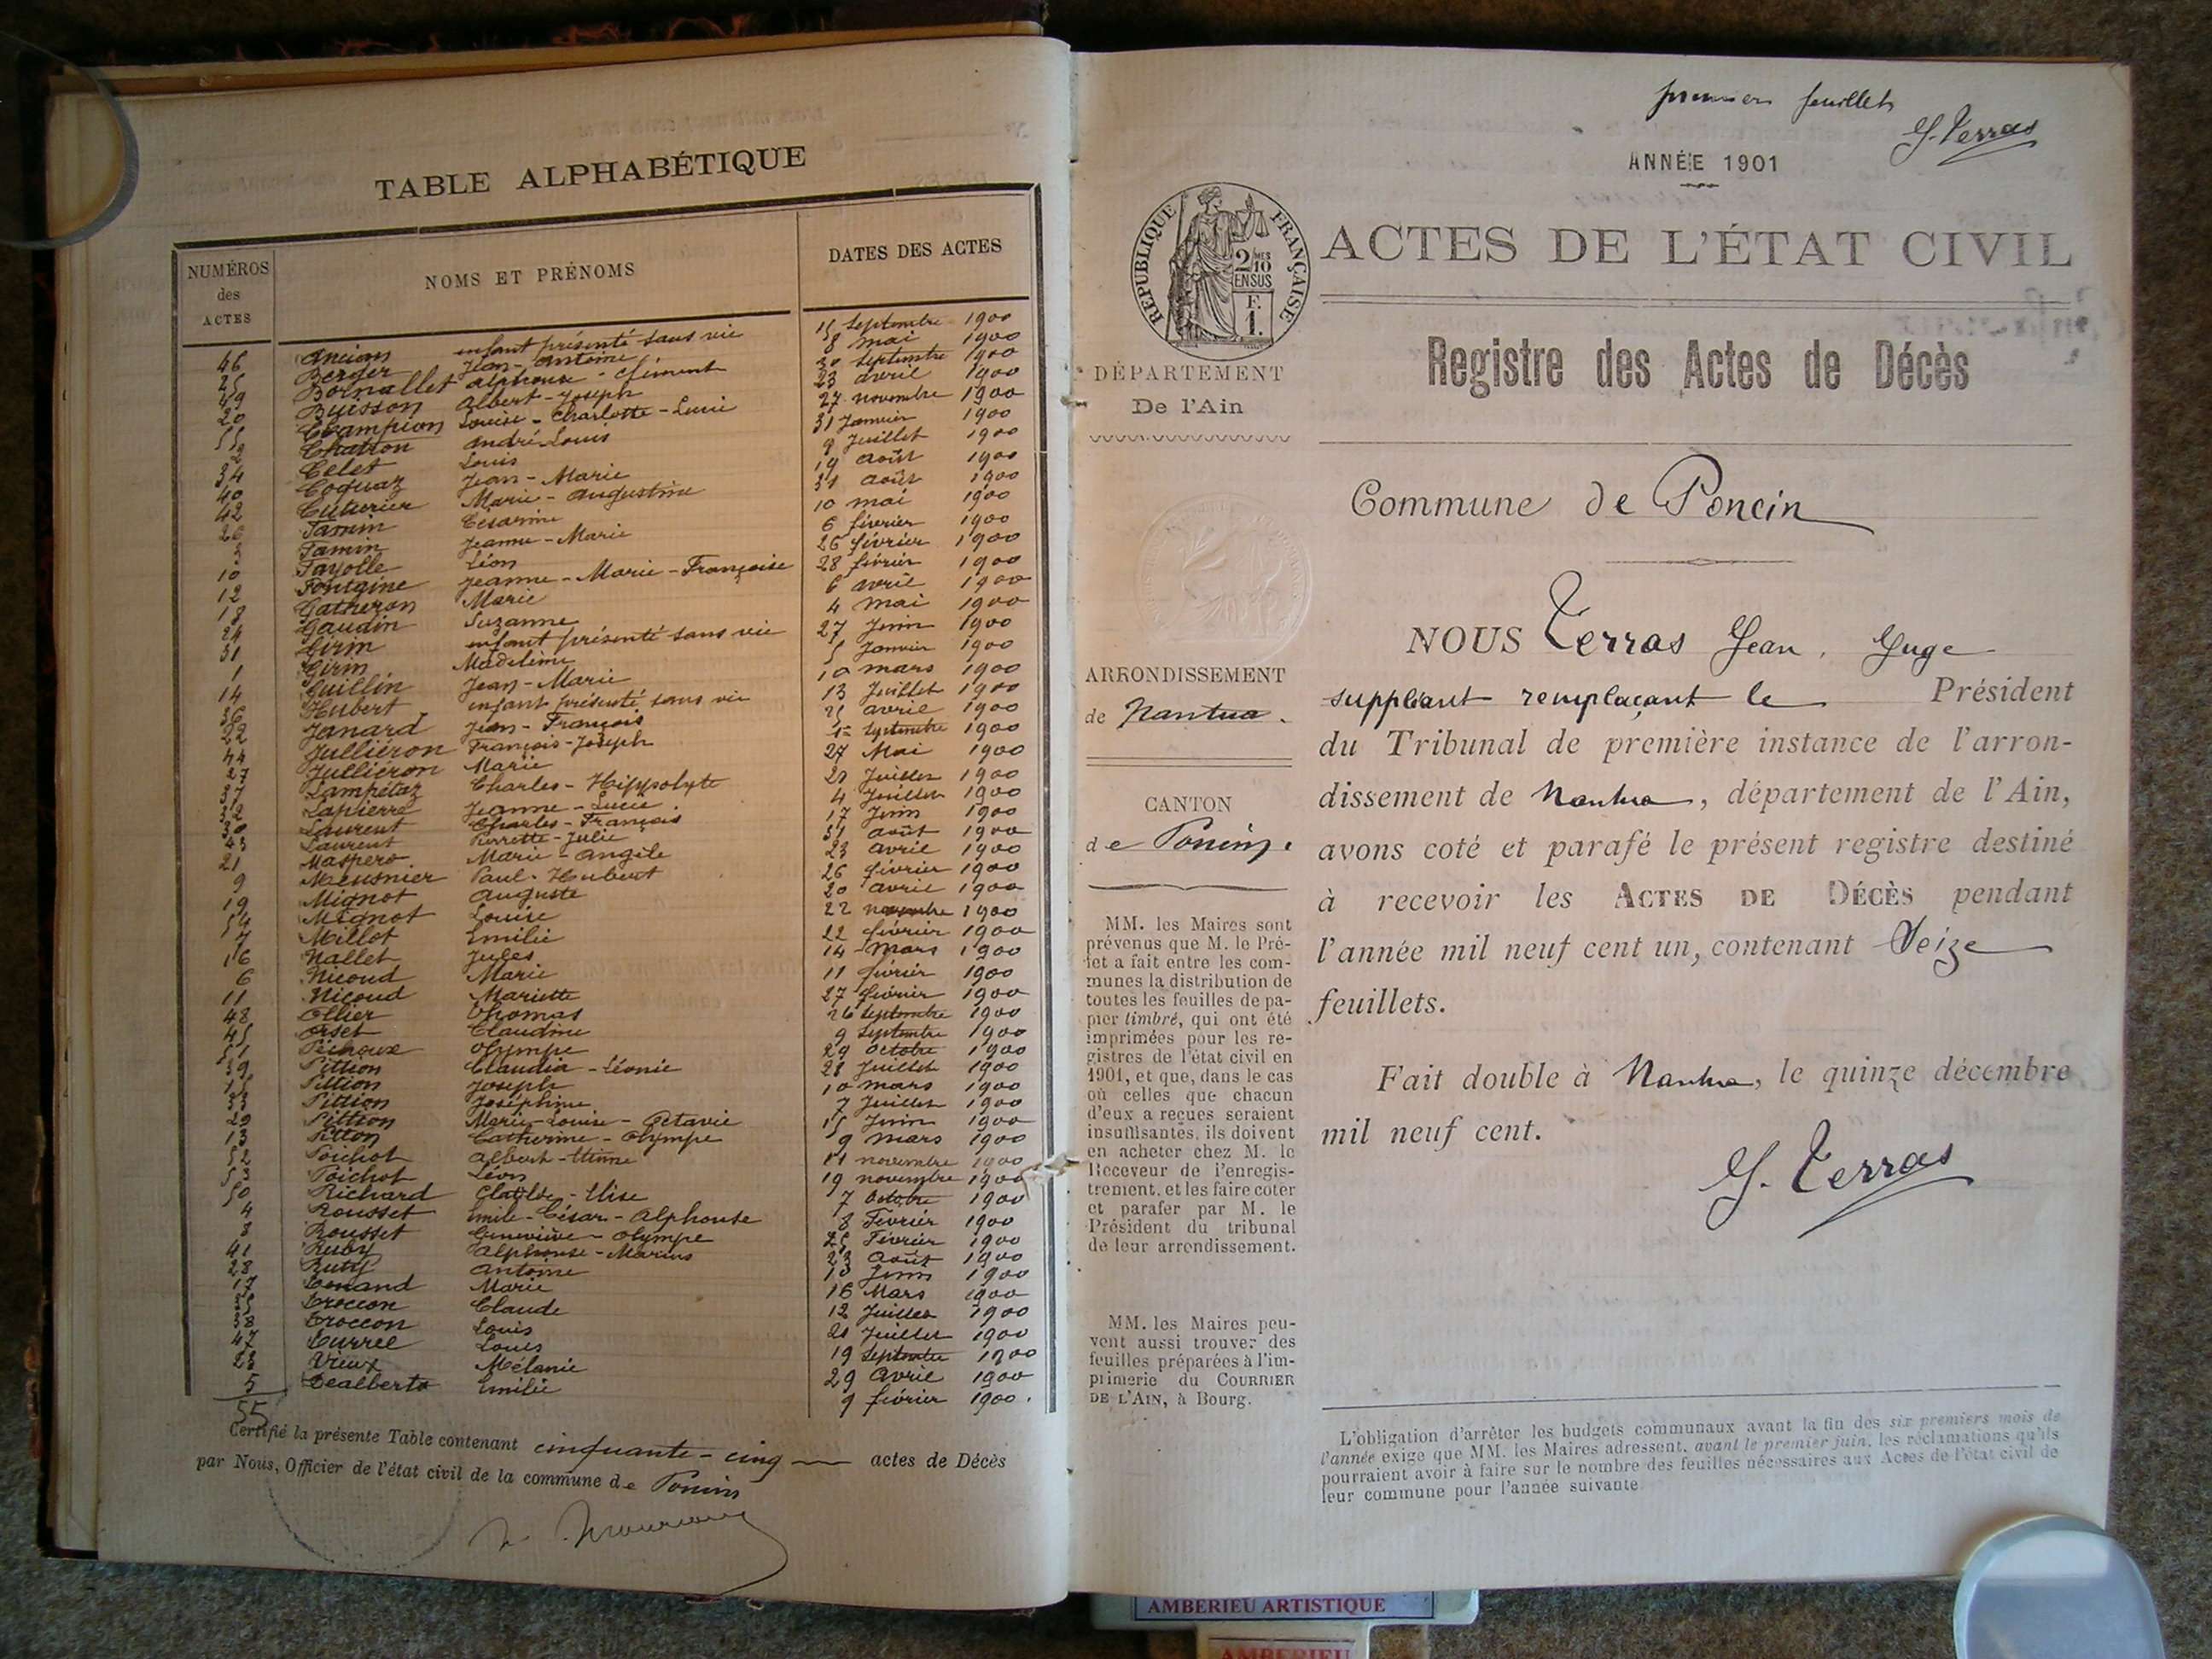 TABLE ALPHABÉTIQUE
NUMÉROS
des
ACTES
NOMS ET PRÉNOMS
DATES DES ACTES
46 Ancian enfant présenté sans vie 15 Septembre 1900
25 Berger Jean-Antoine 8 mai 1900
49 Bornallet Alphonse-Clément 30 Septembre 1900
20 Buisson Albert-Joseph 23 avril 1900
55 Champion Louise-Charlotte-Lucie 27 novembre 1900
2 Chatron André Louis 31 Janvier 1900
34 Celet Louis 9 Juillet 1900
40 Coquaz Jean-Marie 19 août 1900
42 Cuturier Marie-Augustine 31 août 1900
26 Famin Césarine 10 mai 1900
3 Famin Jeanne-Marie 6 février 1900
10 Fayolle Léon 26 février 1900
12 Fontaine Jeanne-Marie-Françoise 28 février 1900
18 Gatheron Marie 6 avril 1900
24 Gaudin Suzanne 4 mai 1900
31 Girin enfant présenté sans vie 27 Juin 1900
1 Girin Madeleine 5 Janvier 1900
14 Guillin Jean-Marie 10 mars 1900
36 Hubert enfant présenté sans vie 13 Juillet 1900
22 Janard Jean-François 25 avril 1900
44 Julliéron François-Joseph 5 Septembre 1900
27 Julliéron Marie 27 Mai 1900
37 Lampétaz Charles-Hippolyte 20 Juillet 1900
32 Lapierre Jeanne-Lucie 4 Juillet 1900
30 Laurent Charles-François 17 Juin 1900
43 Laurent Pierrette-Julie 31 août 1900
21 Maspero Marie-Angèle 23 avril 1900
9 Meusnier Paul-Hubert 26 février 1900
19 Mignot Auguste 20 avril 1900
54 Mignot Louise 22 novembre 1900
7 Millet Emilie 22 février 1900
16 Nallet Jules 14 Mars 1900
6 Nicoud Marie 11 février 1900
11 Nicoud Mariette 27 février 1900
48 Ollier Thomas 26 Septembre 1900
45 Orset Claudine 9 Septembre 1900
51 Olympe 29 Octobre 1900
39 Pittion Claudia-Léonie 28 Juillet 1900
15 Pittion Joseph 10 mars 1900
33 Pittion Joséphine 7 Juillet 1900
29 Pittion Marie-Louise-Octavie 15 Juin 1900
13 Piton Catherine-Olympe 9 mars 1900
52 Poichot Albert-Etienne 11 novembre 1900
53 Poichot Léon 19 novembre 1900
50 Richard Clotilde-Elise 7 Octobre 1900
4 Rousset Emile-César-Alphonse 8 Février 1900
8 Rousset Geneviève-Olympe 25 Février 1900
41 Ruby Alphonse-Marius 23 Août 1900
28 Ruty Antoine 10 Juin 1900
17 Tenand Marie 16 Mars 1900
35 Troccon Claude 12 Juillet 1900
38 Troccon Louis 21 Juillet 1900
47 Turrel Louis 19 Septembre 1900
23 Vieux Mélanie 29 Avril 1900
5 Zealberto Emilie 9 février 1900.
55
Certifié la présente Table contenant cinquante-cinq actes de Décès
par Nous, Officier de l'état civil de la commune de Poncin
premier feuillet
G. Terras
ANNÉE 1901
RÉPUBLIQUE FRANÇAISE
2/10 MES
EN SUS
F.
1.
ACTES DE L'ÉTAT CIVIL
Registre des Actes de Décès
DÉPARTEMENT
De l'Ain
Commune de Poncin
NOUS Terras Jean, Juge
suppléant remplaçant le Président
du Tribunal de première instance de l'arron-
dissement de Nantua, département de l'Ain,
avons coté et parafé le présent registre destiné
à recevoir les ACTES DE DÉCÈS pendant
l'année mil neuf cent un, contenant Seize
feuillets.
Fait double à Nantua, le quinze décembre
mil neuf cent.
G. Terras
ARRONDISSEMENT
de Nantua.
CANTON
de Poncin.
MM. les Maires sont
prévenus que M. le Pré-
fet a fait entre les com-
munes la distribution de
toutes les feuilles de pa-
pier timbré, qui ont été
imprimées pour les re-
gistres de l'état civil en
1901, et que, dans le cas
où celles que chacun
d'eux a reçues seraient
insuffisantes, ils doivent
en acheter chez M. le
Receveur de l'enregis-
trement, et les faire coter
et parafer par M. le
Président du tribunal
de leur arrondissement.
MM. les Maires peu-
vent aussi trouver des
feuilles préparées à l'im-
primerie du COURRIER
DE L'AIN, à Bourg.
L'obligation d'arrêter les budgets communaux avant la fin des six premiers mois de
l'année exige que MM. les Maires adressent, avant le premier juin, les réclamations qu'ils
pourraient avoir à faire sur le nombre des feuilles nécessaires aux Actes de l'état civil de
leur commune pour l'année suivante.
AMBERIEU ARTISTIQUE
AMBERIEU